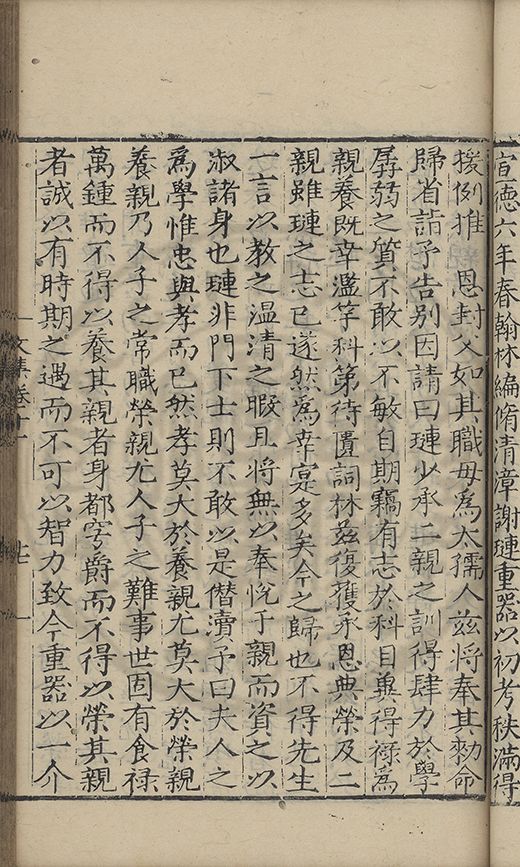 宣德六年春翰林編脩清漳謝璉重器以初考秩滿得
援例推　恩封父如其職母爲太孺人兹將奉其勑命
歸省詣予告别因請曰璉少承二親之訓得肆力於學
孱弱之質不敢以不敏自期竊有志於科目兾得禄爲
親養既幸濫竽科第待匱詞林兹復獲承恩典榮及二
親雖璉之志已遂然爲幸寔多矣今之歸也不得先生
一言以教之温凊之暇且將無以奉恱于親而資之以
淑諸身也璉非門下士則不敢以是僭瀆予曰夫人之
爲學惟忠與孝而已然孝莫大於養親尤莫大於榮親
養親乃人子之常職榮親尤人子之難事世固有食禄
萬鍾而不得以養其親者身都穹爵而不得以榮其親
者誠以有時期之遇而不可以智力致今重器以一介
文集卷十一
七